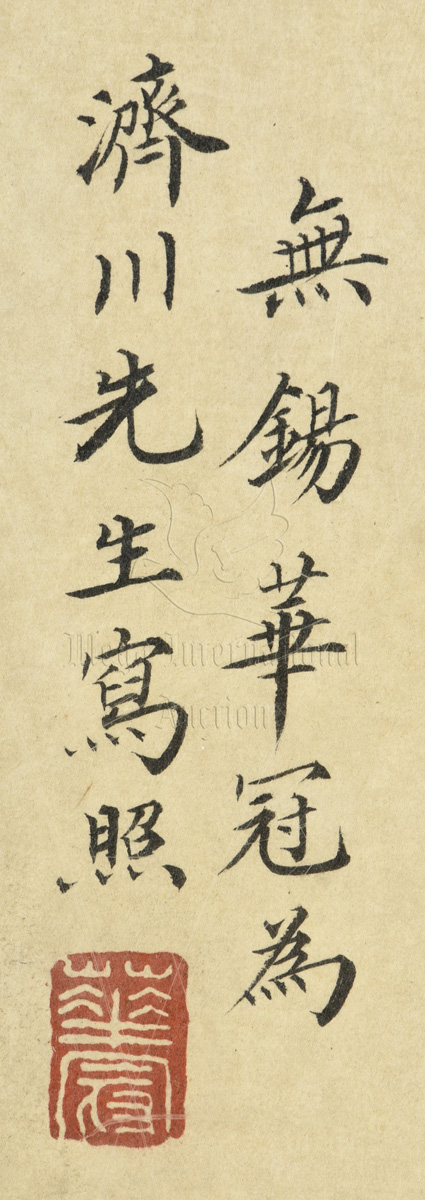 無錫華冠為
濟川先生寫照
華冠
Weda International
Auction